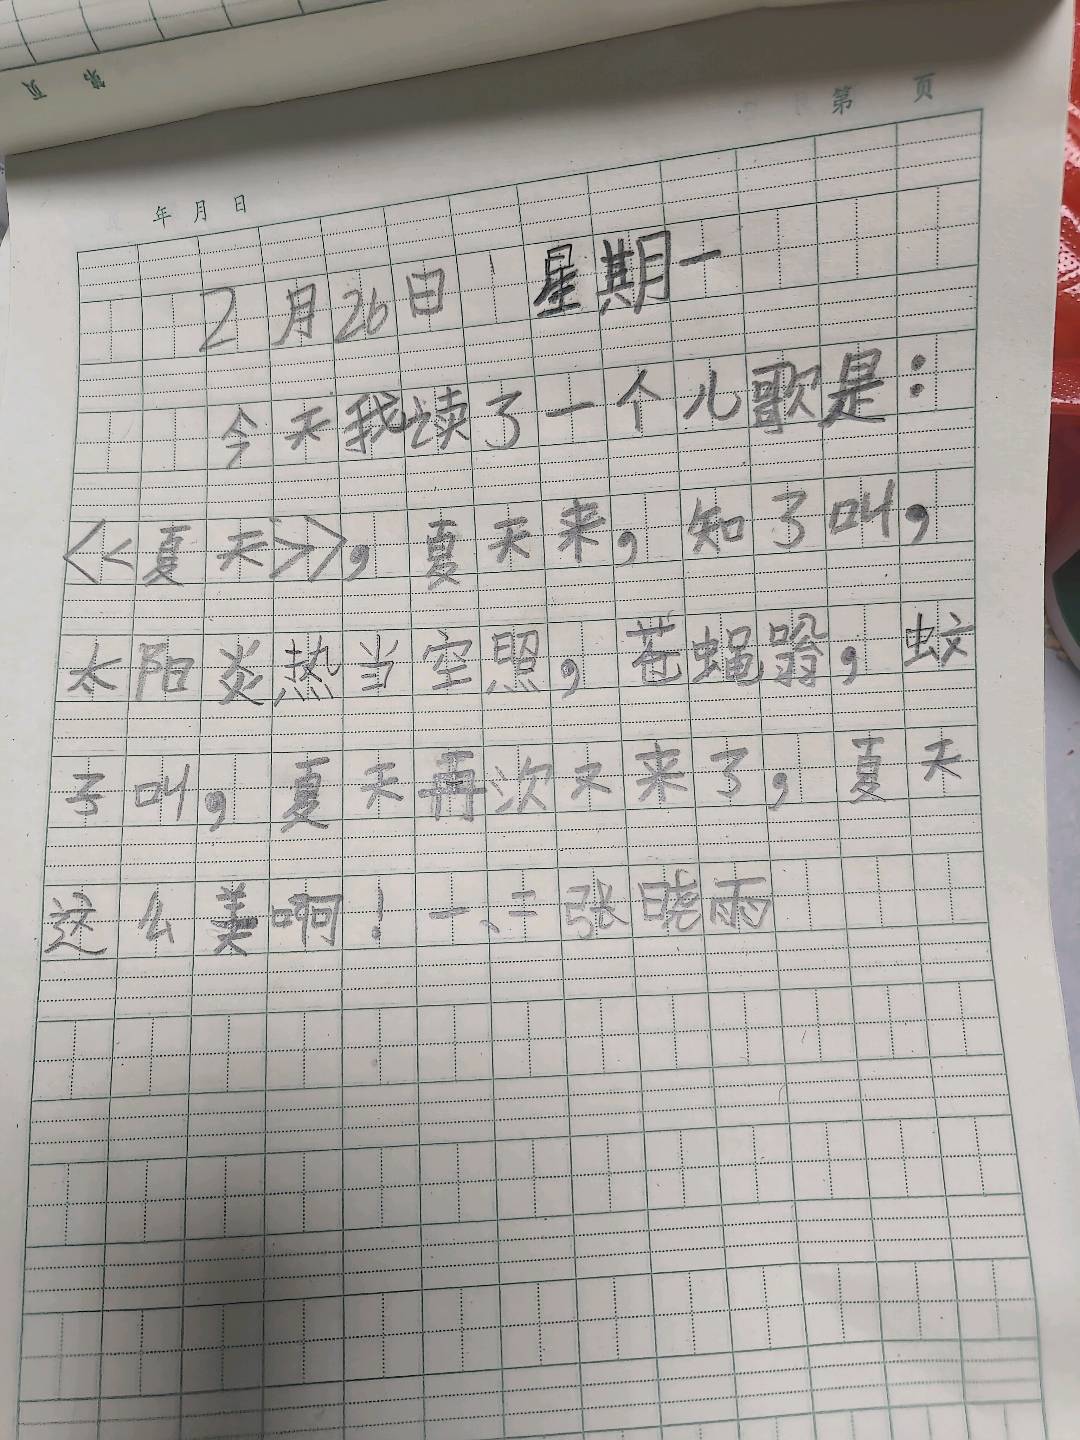 页 第
第 页
年 月 日
2月26日 星期一
今天我读了一个儿歌是：
<<夏天>>，夏天来，知了叫，
太阳炎热当空照，苍蝇，蚊
子叫，夏天再次又来了，夏天
这么美啊！一、二张晓雨